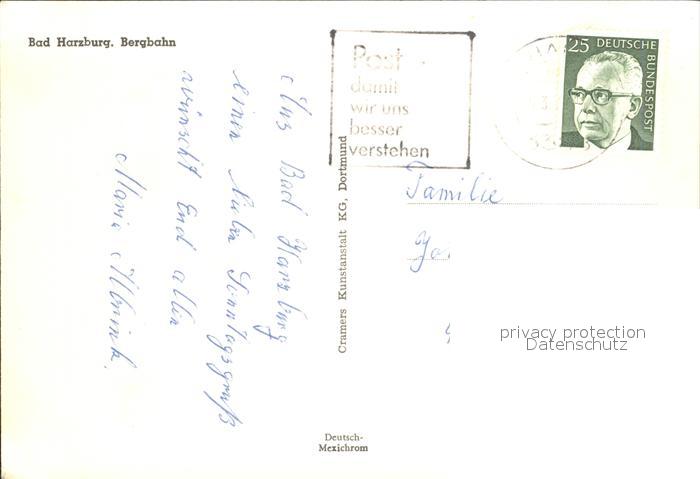 Bad Harzburg, Bergbahn
Aus Bad Harzburg
einen lieben Sonntagsgruß
wünscht Euch allen
Maria
Cramers Kunstanstalt KG, Dortmund
Deutsch-
Mexichrom
Post
damit
wir uns
besser
verstehen
25 DEUTSCHE
BUNDESPOST
Familie
privacy protection
Datenschutz